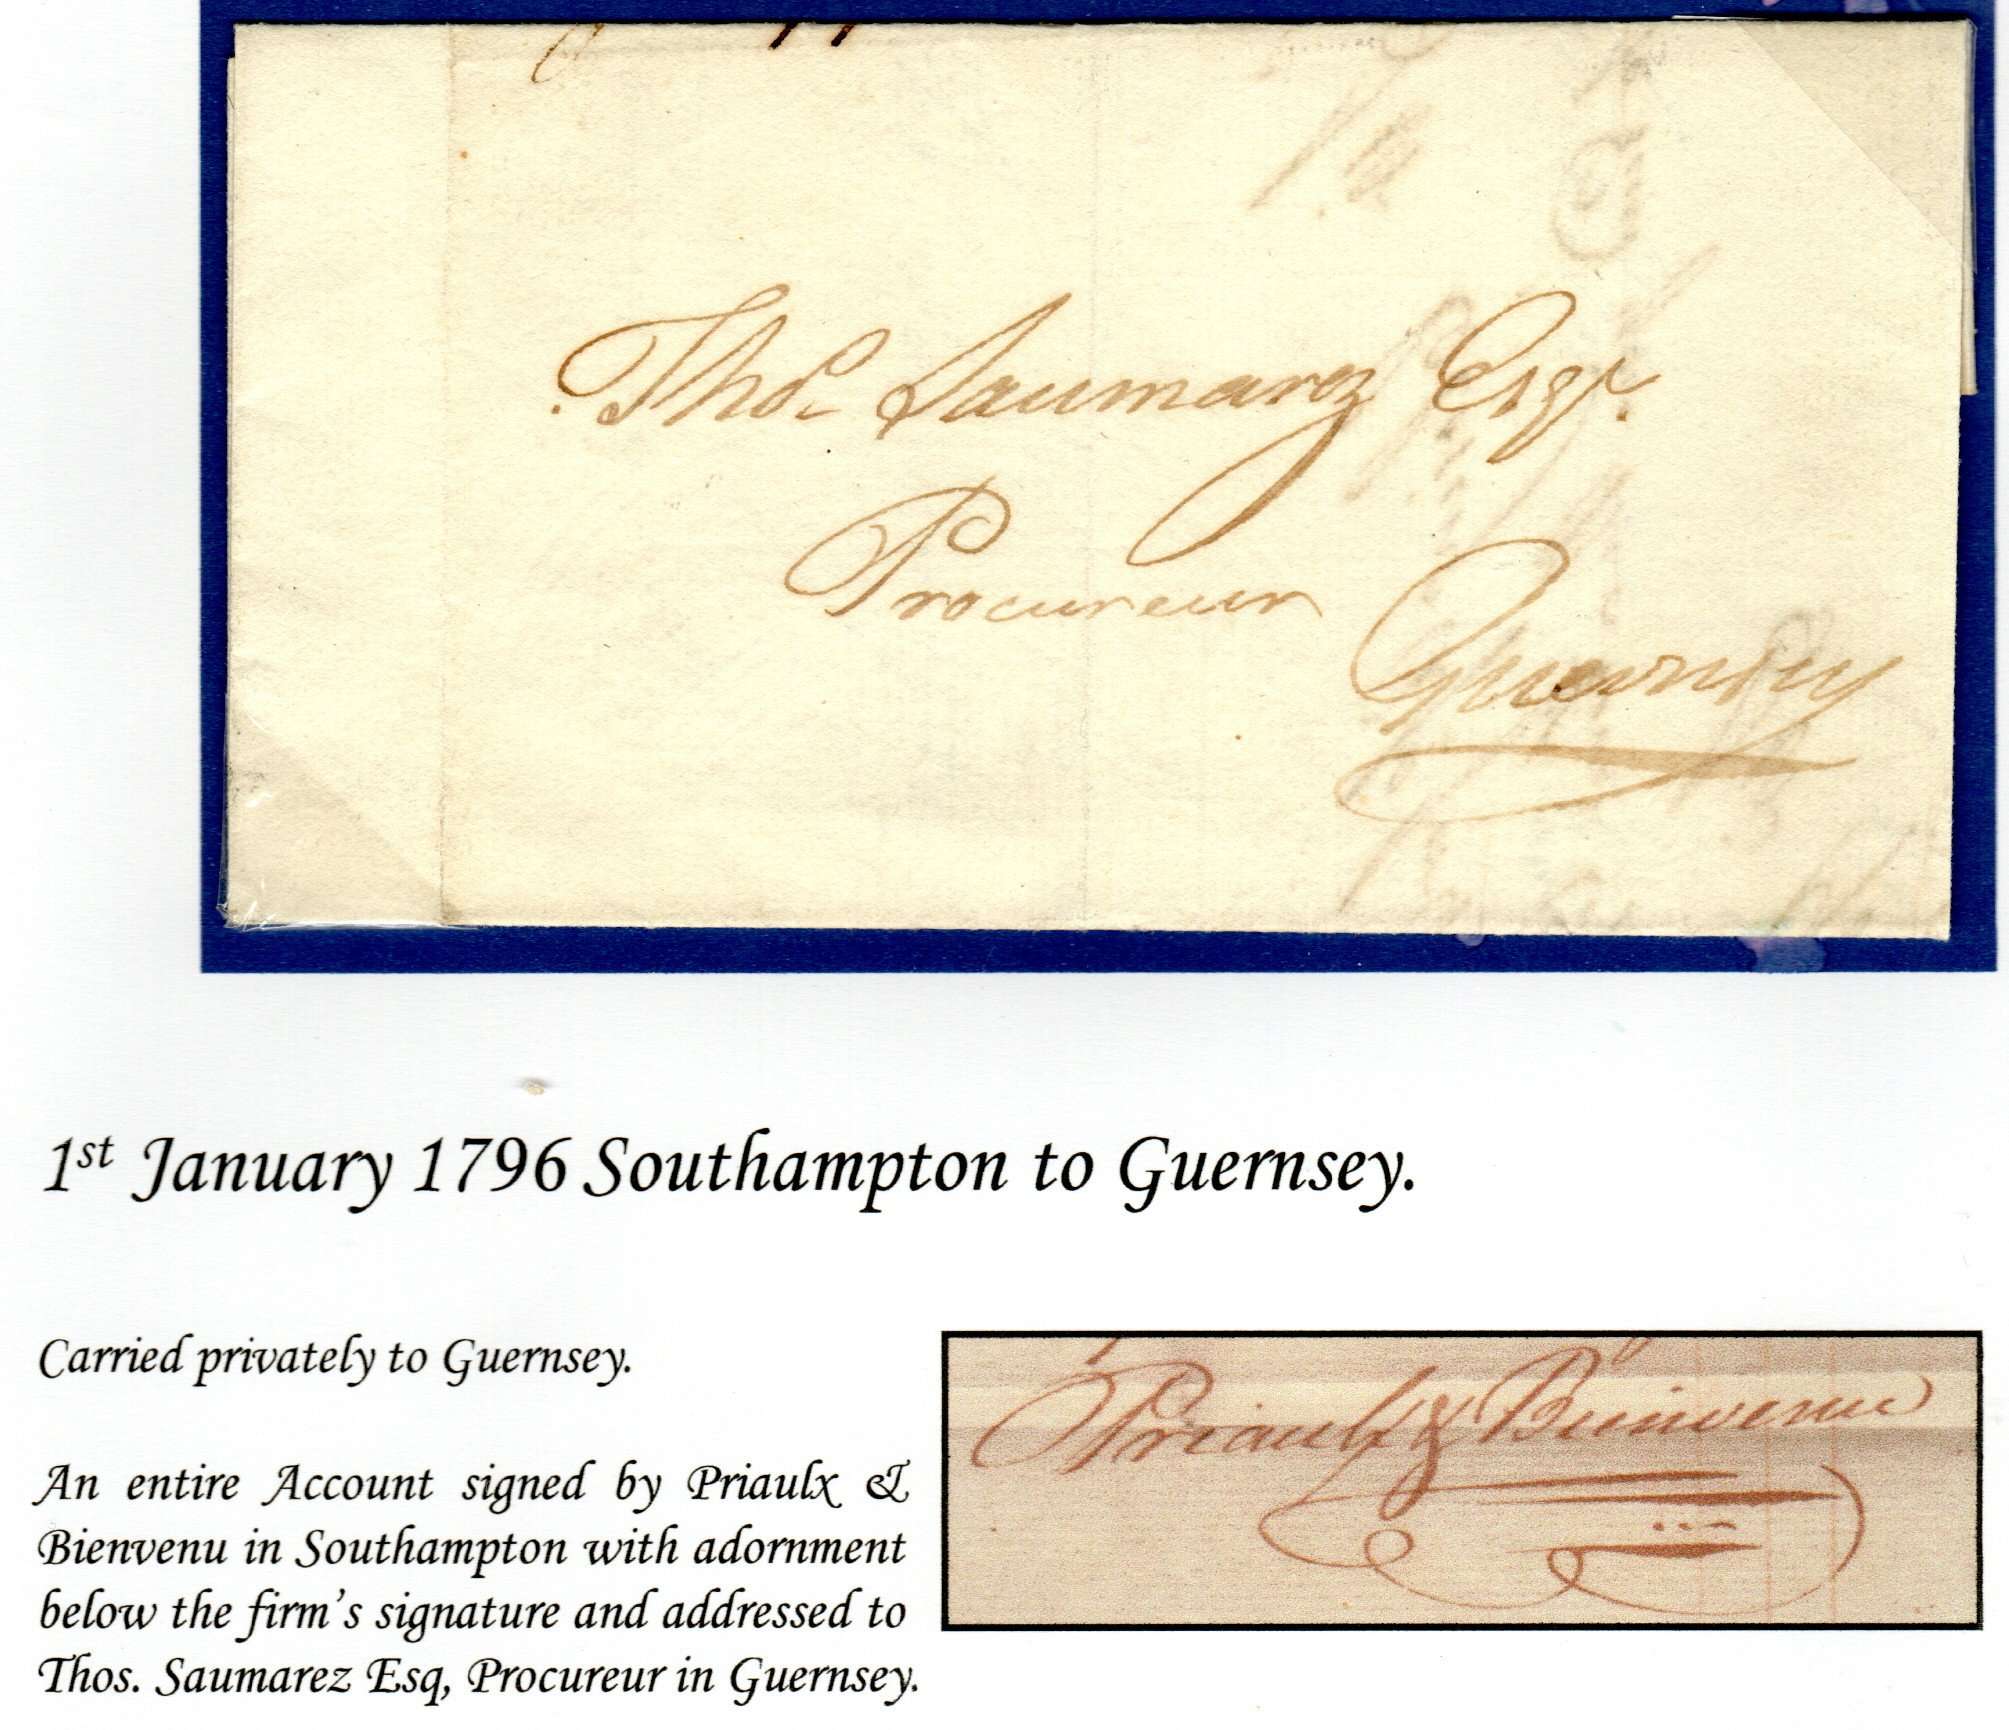 Thos. Saumarez Esqr.
Procureur
Guernsey
1st January 1796 Southampton to Guernsey.
Carried privately to Guernsey.
Priaulx & Bienvenu
An entire Account signed by Priaulx &
Bienvenu in Southampton with adornment
below the firm's signature and addressed to
Thos. Saumarez Esq, Procureur in Guernsey.